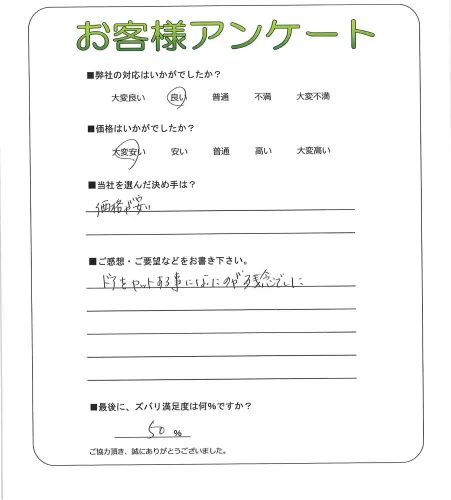 お客様アンケート
■弊社の対応はいかがでしたか?
大変良い 良い 普通 不満 大変不満
■価格はいかがでしたか?
大変安い 安い 普通 高い 大変高い
■当社を選んだ決め手は?
価格が安い
■ご感想・ご要望などをお書き下さい。
ドアをカットする事になったのが残念でした
■最後に、ズバリ満足度は何%ですか?
50 %
ご協力頂き、誠にありがとうございました。